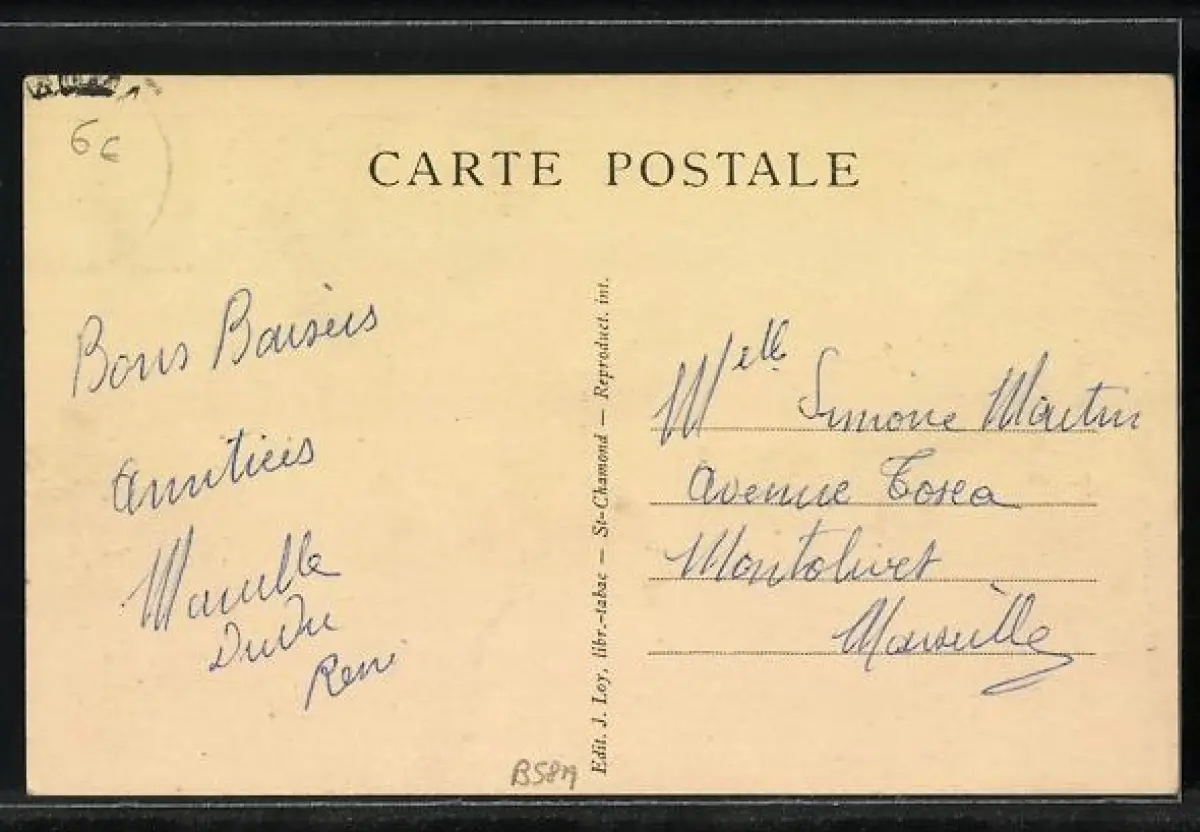 6€
CARTE POSTALE
Bons Baisers
Amitiés
René
Edit. J. Loy, libr.-tabac — St-Chamond — Reproduct. int.
Melle Simone Martin
Avenue Tosca
Montolivet
Marseille